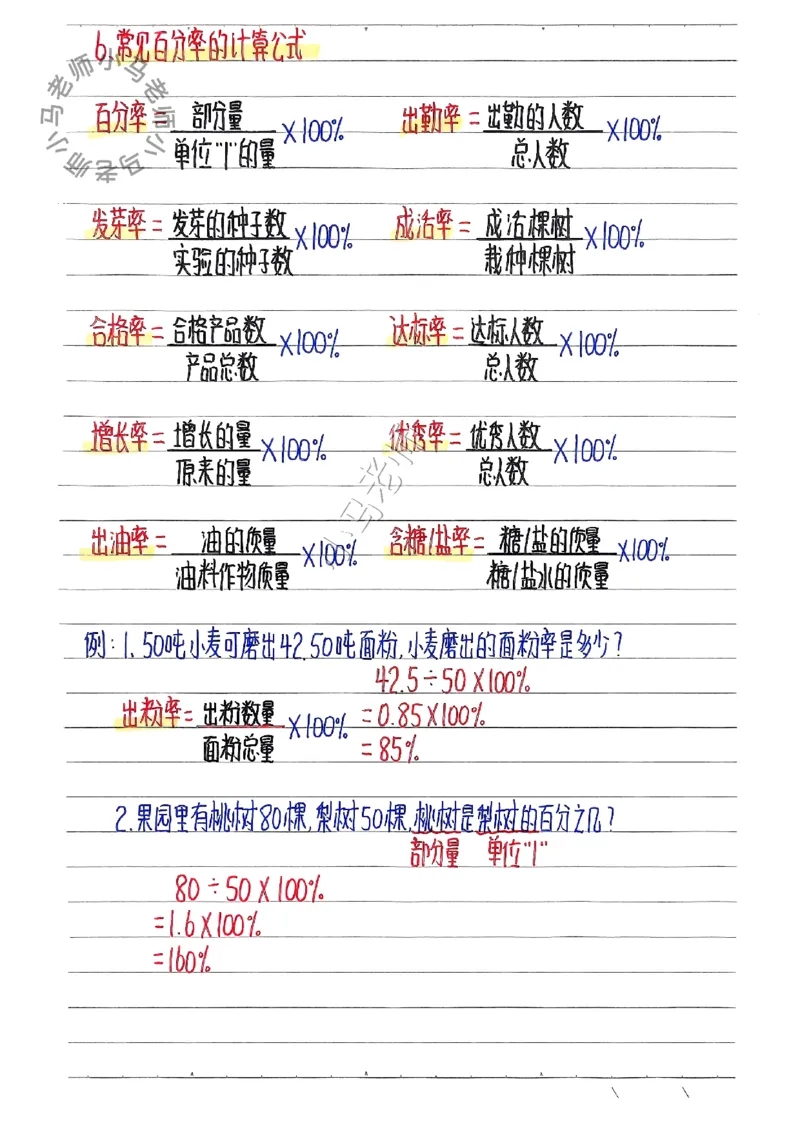 6.常见百分率的计算公式
百分率=部分量/单位"1"的量×100% 出勤率=出勤的人数/总人数×100%
发芽率=发芽的种子数/实验的种子数×100% 成活率=成活棵树/栽种棵树×100%
合格率=合格产品数/产品总数×100% 达标率=达标人数/总人数×100%
增长率=增长的量/原来的量×100% 优秀率=优秀人数/总人数×100%
出油率=油的质量/油料作物质量×100% 含糖/盐率=糖/盐的质量/糖/盐水的质量×100%
例:1.50吨小麦可磨出42.50吨面粉,小麦磨出的面粉率是多少?
42.5÷50×100%
出粉率=出粉数量/面粉总量×100% =0.85×100%
=85%
2.果园里有桃树80棵,梨树50棵,桃树是梨树的百分之几?
部分量 单位"1"
80÷50×100%
=1.6×100%
=160%
小马老师小马老师小马老师
小马老师